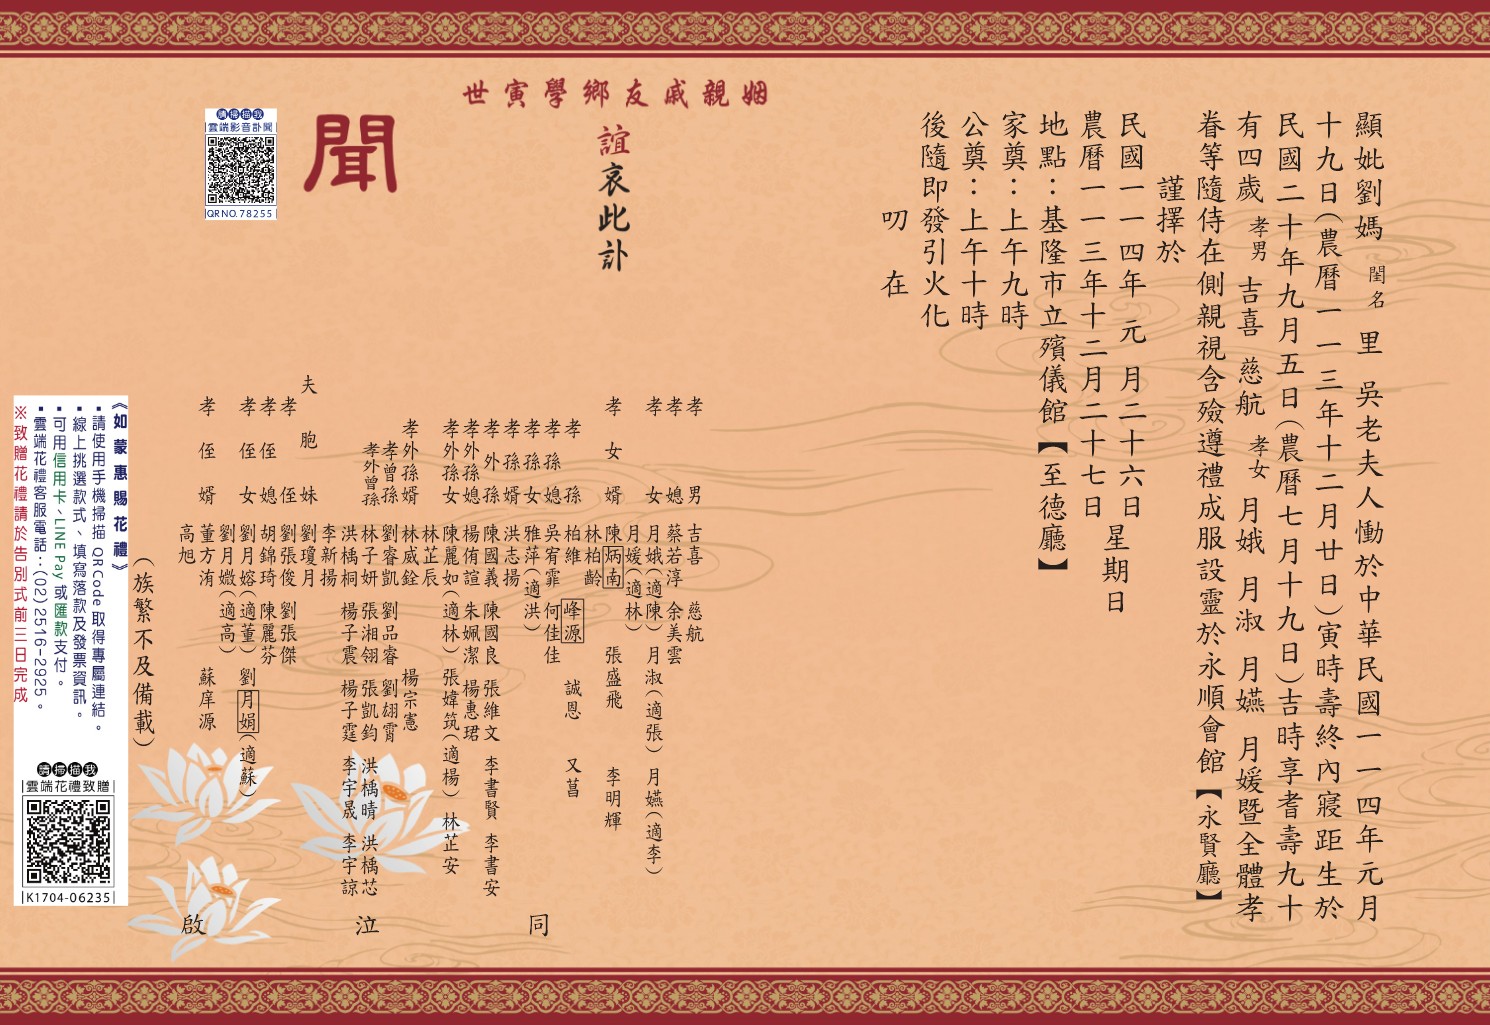 顯妣劉媽閨名里吳老夫人慟於中華民國一一四年元月
十九日(農曆一一三年十二月廿日)寅時壽終內寢距生於
民國二十年九月五日(農曆七月十九日)吉時享耆壽九十
有四歲孝男吉喜 慈航 孝女月娥 月淑 月嬿 月媛暨全體孝
眷等隨侍在側親視含殮遵禮成服設靈於永順會館【永賢廳】
謹擇於
民國一一四年元月二十六日星期日
農曆一一三年十二月二十七日
地點：基隆市立殯儀館【至德廳】
家奠：上午九時
公奠：上午十時
後隨即發引火化
叨在
姻親戚友鄉學寅世
誼哀此訃
聞
孝男 吉喜 慈航
孝媳 蔡若淳 余美雲
孝女 月娥(適陳) 月淑(適張) 月嬿(適李)
月媛(適林)
孝女婿 陳炳南 張盛飛 李明輝
林柏齡
孝孫 柏維 峰源 誠恩 又菖
孝孫媳 吳宥霏 何佳佳
孝孫女 雅萍(適洪)
孝孫婿 洪志揚
孝外孫 陳國義 陳國良 張維文 李書賢 李書安
孝外孫媳 楊侑諠 朱姵潔 楊惠珺
孝外孫女 陳麗如(適林) 張媁筑(適楊) 林芷安
林芷辰
孝外孫婿 林威銓 楊宗憲
孝曾孫 劉睿凱 劉品睿 劉翃霄
孝外曾孫 林子妍 張湘翎 張凱鈞 洪楀晴 洪楀芯
洪楀桐 楊子震 楊子霆 李宇晟 李宇諒
李新揚
夫胞妹 劉瓊月
孝侄 劉張俊 劉張傑
孝侄媳 胡錦琦 陳麗芬
孝侄女 劉月嫆(適董) 劉月娟(適蘇)
劉月媺(適高)
孝侄婿 董方洧 蘇庠源
高旭
(族繁不及備載)
同泣啟
請掃描我
雲端影音訃聞
QR NO. 78255
《如蒙惠賜花禮》
▪請使用手機掃描 QRCode 取得專屬連結。
▪線上挑選款式、填寫落款及發票資訊。
▪可用信用卡、LINE Pay 或匯款支付。
▪雲端花禮客服電話：(02)2516-2925。
※致贈花禮請於告別式前三日完成
請掃描我
雲端花禮致贈
K1704-06235